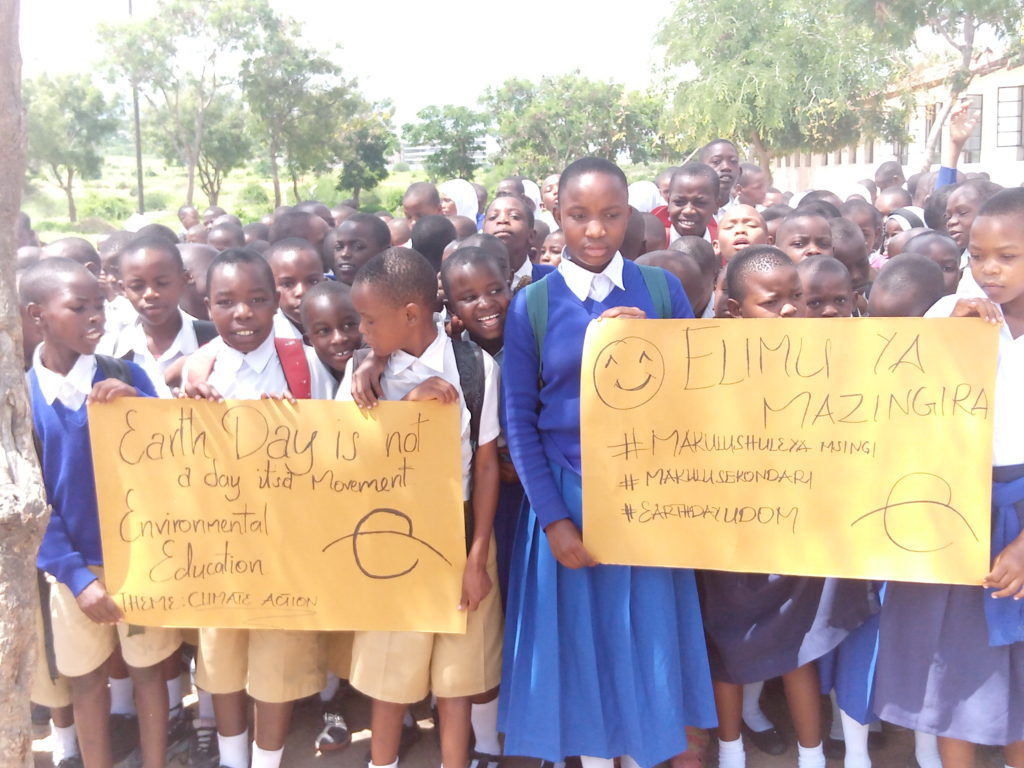 Earth Day is not
a day its a Movement
Environmental
Education
THEME: CLIMATE ACTION
ELIMU YA
MAZINGIRA
#MAKULUSHULEYA MSINGI
#MAKULUSEKONDARI
#EARTHDAYUDOM